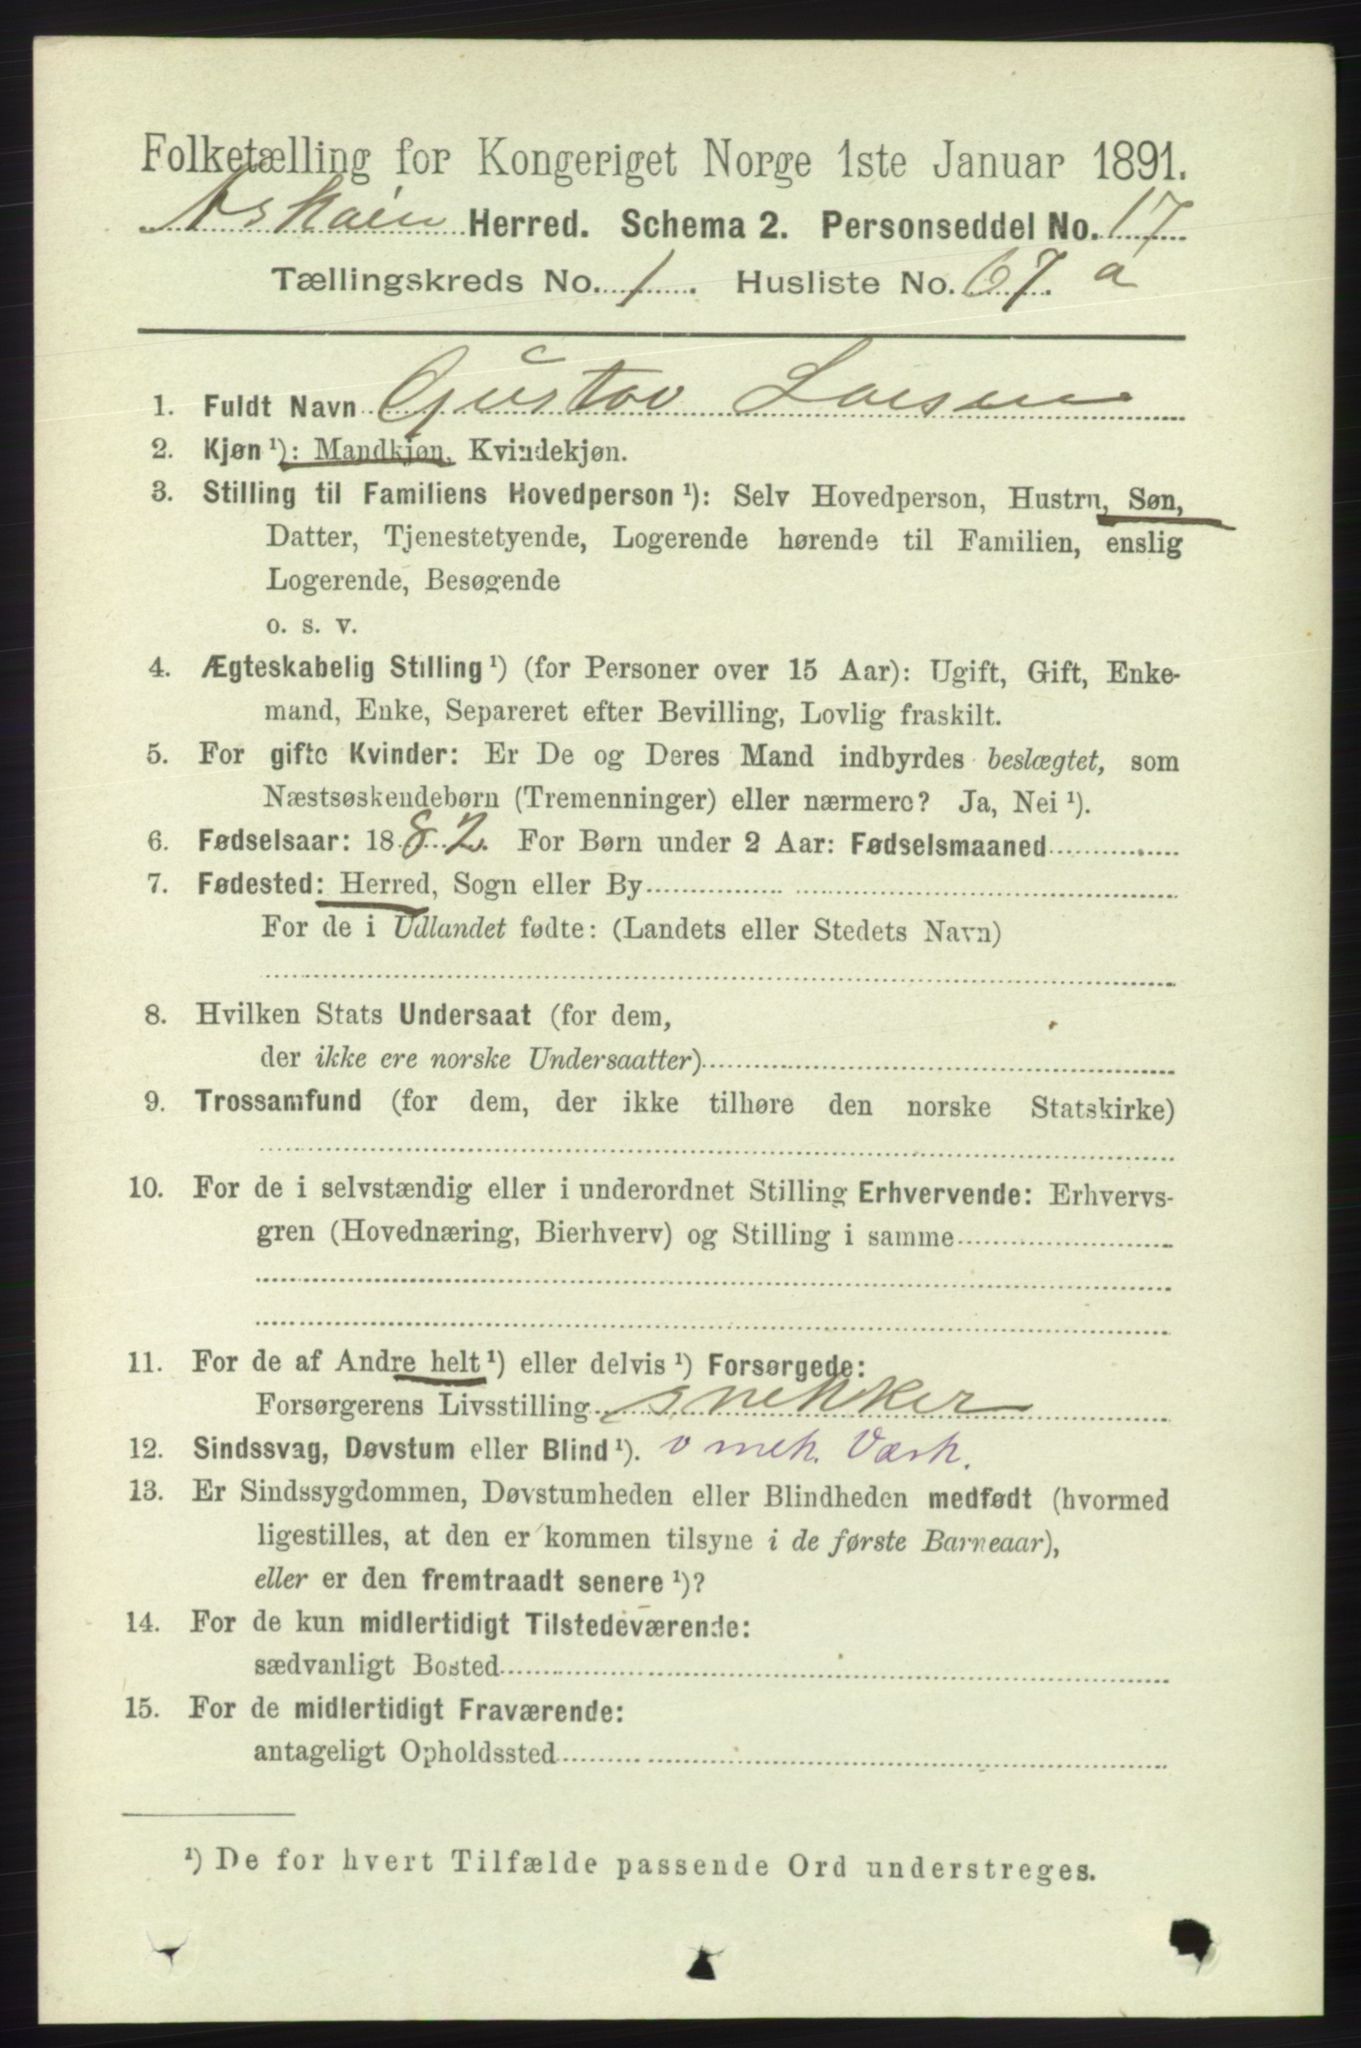 Folketælling for Kongeriget Norge 1ste Januar 1891.
Askøen Herred. Schema 2. Personseddel No. 17
Tællingskreds No. 1. Husliste No. 67 a
1. Fuldt Navn Gustav Larsen
2. Kjøn ¹): Mandkjøn, Kvindekjøn.
3. Stilling til Familiens Hovedperson ¹): Selv Hovedperson, Hustru, Søn,
Datter, Tjenestetyende, Logerende hørende til Familien, enslig
Logerende, Besøgende
o. s. v.
4. Ægteskabelig Stilling ¹) (for Personer over 15 Aar): Ugift, Gift, Enke-
mand, Enke, Separeret efter Bevilling, Lovlig fraskilt.
5. For gifte Kvinder: Er De og Deres Mand indbyrdes beslægtet, som
Næstsøskendebørn (Tremenninger) eller nærmere? Ja, Nei ¹).
6. Fødselsaar: 1882. For Børn under 2 Aar: Fødselsmaaned
7. Fødested: Herred, Sogn eller By
For de i Udlandet fødte: (Landets eller Stedets Navn)
8. Hvilken Stats Undersaat (for dem,
der ikke ere norske Undersaatter)
9. Trossamfund (for dem, der ikke tilhøre den norske Statskirke)
10. For de i selvstændig eller i underordnet Stilling Erhvervende: Erhvervs-
gren (Hovednæring, Bierhverv) og Stilling i samme
11. For de af Andre helt ¹) eller delvis ¹) Forsørgede:
Forsørgerens Livsstilling snekker
12. Sindssvag, Døvstum eller Blind ¹). v mek. Værk.
13. Er Sindssygdommen, Døvstumheden eller Blindheden medfødt (hvormed
ligestilles, at den er kommen tilsyne i de første Barneaar),
eller er den fremtraadt senere ¹)?
14. For de kun midlertidigt Tilstedeværende:
sædvanligt Bosted
15. For de midlertidigt Fraværende:
antageligt Opholdssted
¹) De for hvert Tilfælde passende Ord understreges.